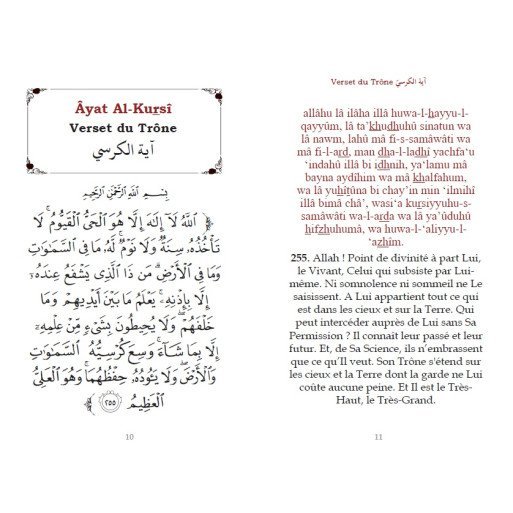 Âyat Al-Kursî
Verset du Trône
آية الكرسي
بِسْمِ اللَّهِ الرَّحْمَٰنِ الرَّحِيمِ
﴿ ٱللَّهُ لَآ إِلَٰهَ إِلَّا هُوَ ٱلْحَىُّ ٱلْقَيُّومُ ۚ لَا
تَأْخُذُهُۥ سِنَةٌ وَلَا نَوْمٌ ۚ لَّهُۥ مَا فِى ٱلسَّمَٰوَٰتِ
وَمَا فِى ٱلْأَرْضِ ۗ مَن ذَا ٱلَّذِى يَشْفَعُ عِندَهُۥٓ
إِلَّا بِإِذْنِهِۦ ۚ يَعْلَمُ مَا بَيْنَ أَيْدِيهِمْ وَمَا
خَلْفَهُمْ ۖ وَلَا يُحِيطُونَ بِشَىْءٍ مِّنْ عِلْمِهِۦٓ
إِلَّا بِمَا شَآءَ ۚ وَسِعَ كُرْسِيُّهُ ٱلسَّمَٰوَٰتِ
وَٱلْأَرْضَ ۖ وَلَا يَـُٔودُهُۥ حِفْظُهُمَا ۚ وَهُوَ ٱلْعَلِىُّ
ٱلْعَظِيمُ ﴿٢٥٥﴾
10
Verset du Trône آية الكرسي
allâhu lâ ilâha illâ huwa-l-hayyu-l-
qayyûm, lâ ta’khudhuhû sinatun wa
lâ nawm, lahû mâ fi-s-samâwâti wa
mâ fi-l-ard, man dha-l-ladhî yachfa‘u
‘indahû illâ bi idhnih, ya‘lamu mâ
bayna aydîhim wa mâ khalfahum,
wa lâ yuhîtûna bi chay’in min ‘ilmihî
illâ bimâ châ’, wasi‘a kursiyyuhu-s-
samâwâti wa-l-arda wa lâ ya’ûduhû
hifzhuhumâ, wa huwa-l-‘aliyyu-l-
‘azhîm.
255. Allah ! Point de divinité à part Lui,
le Vivant, Celui qui subsiste par Lui-
même. Ni somnolence ni sommeil ne Le
saisissent. A Lui appartient tout ce qui
est dans les cieux et sur la Terre. Qui
peut intercéder auprès de Lui sans Sa
Permission ? Il connait leur passé et leur
futur. Et, de Sa Science, ils n’embrassent
que ce qu’Il veut. Son Trône s’étend sur
les cieux et la Terre dont la garde ne Lui
coûte aucune peine. Et Il est le Très-
Haut, le Très-Grand.
11